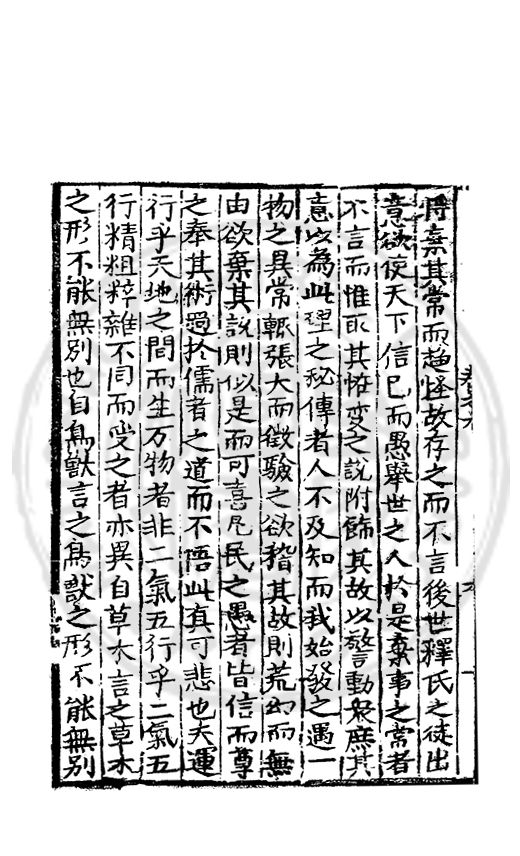 將棄其常而趨怪故存之而不言後世釋氏之徒出
意欲使天下信己而愚舉世之人於是棄事之常者
不言而惟取其恠變之說附飾其故以警動衆庶其
意以為此理之秘傳者人不及知而我始發之遇一
物之異常輒張大而徵驗之欲稽其故則荒幻而無
由欲棄其說則似是而可喜凡民之愚者皆信而尊
之奉其術過於儒者之道而不悟此真可悲也夫運
行乎天地之間而生万物者非二氣五行乎二氣五
行精粗粹雜不同而受之者亦異自草木言之草木
之形不能無別也自鳥獸言之鳥獸之形不能無別